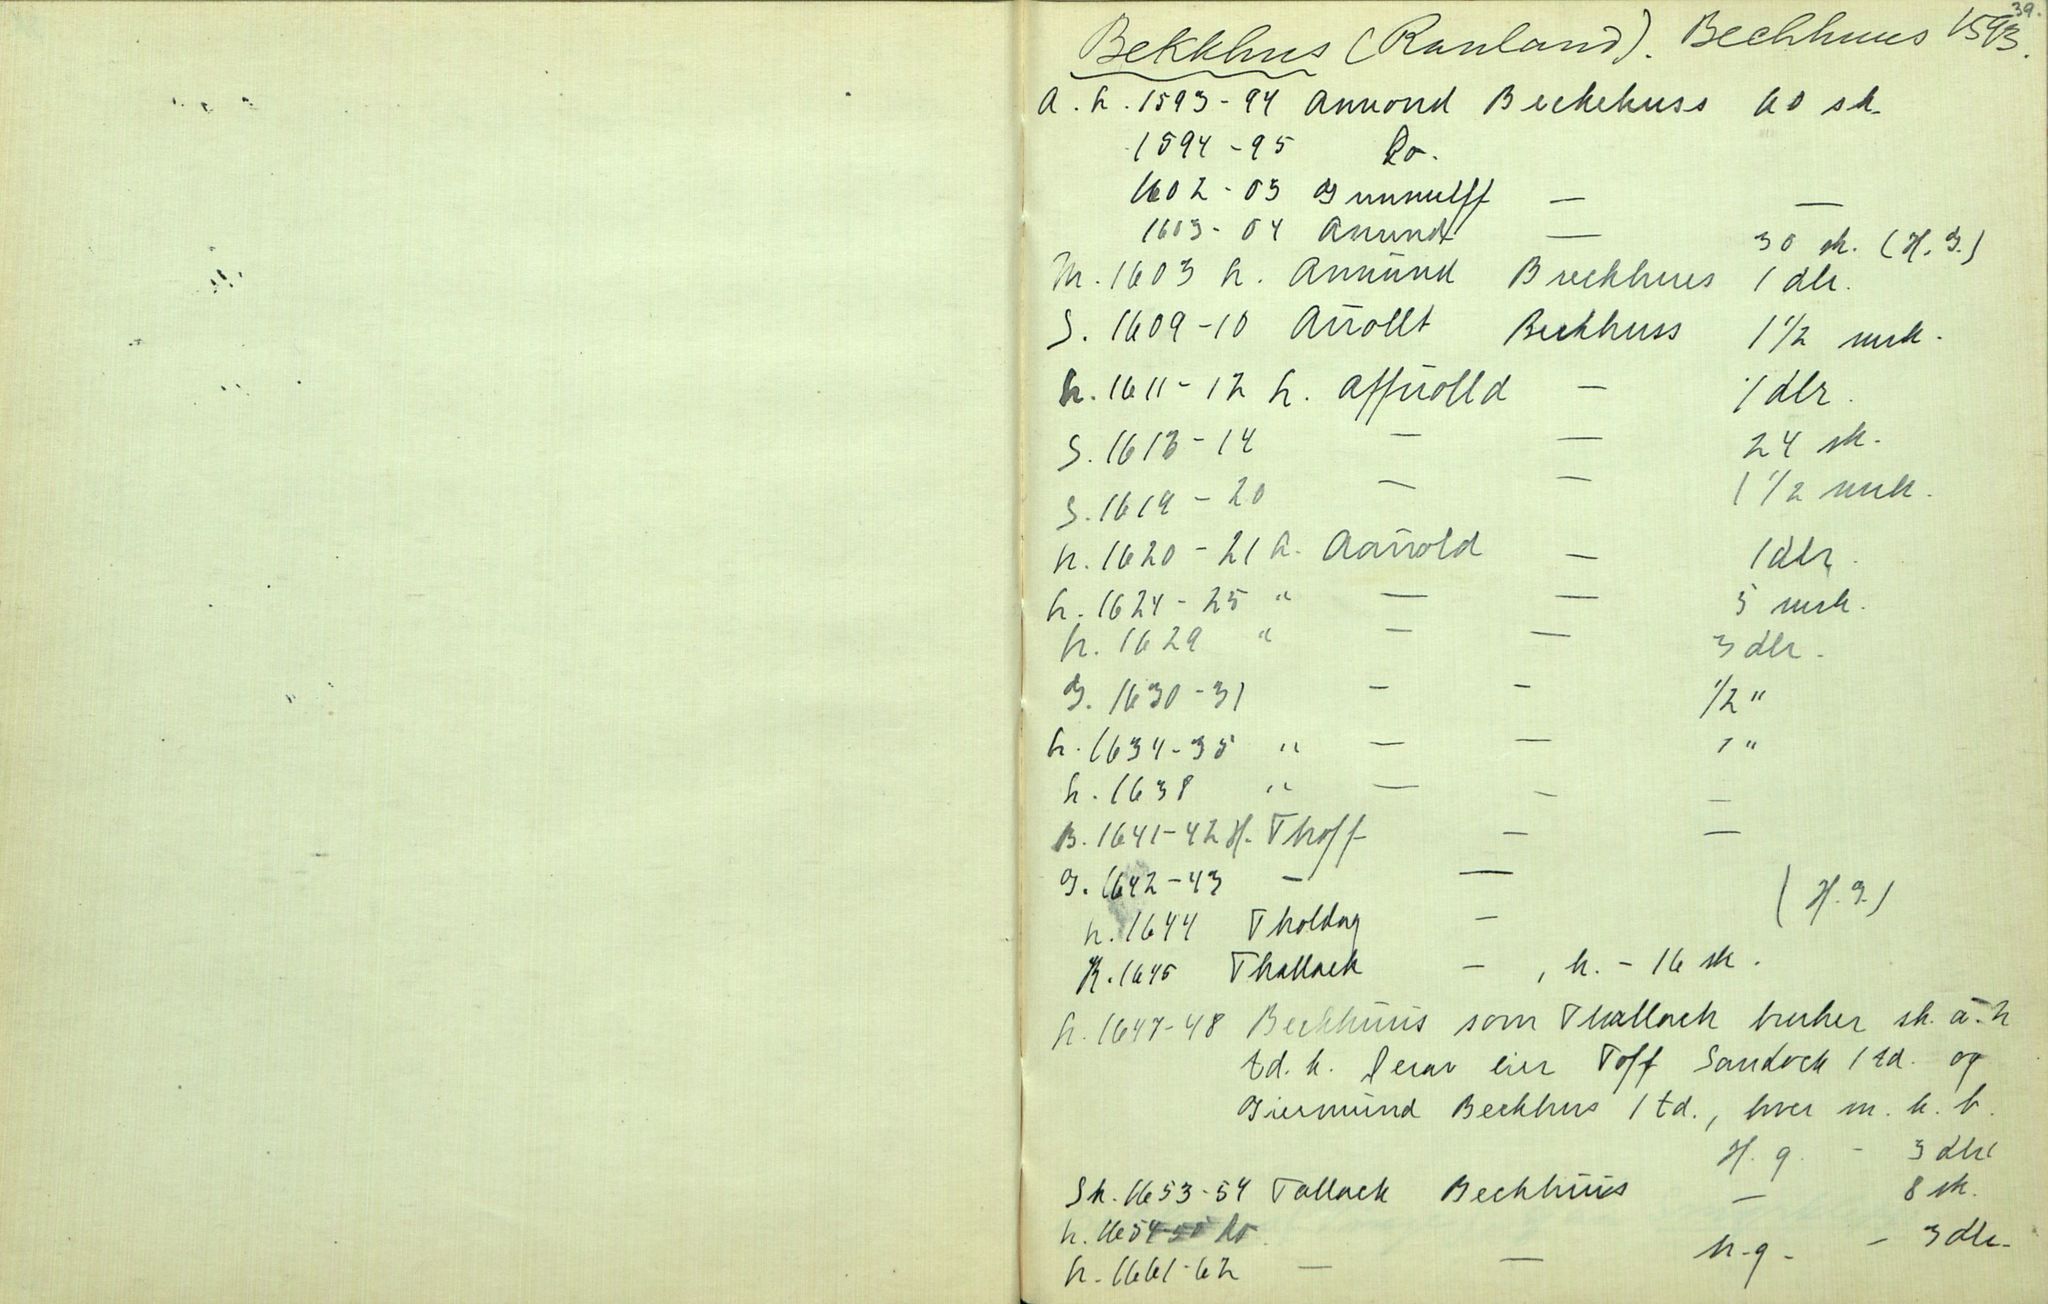 39.
Bekkhus (Rauland). Bechhuus 1593.
A. h. 1593-94 Amond Beckehuss 60 sk.
1594-95 Do.
1602-03 Gunnulff — —
1603-04 Amund — 30 sk. (H. G.)
M. 1603 h. Amund Beckhues 1 dlr.
S. 1609-10 Aŭollt Beckhuss 1 1/2 mrk.
h. 1611-12 h. Affŭolld — 1 dlr.
S. 1613-14 — — 24 sk.
S. 1619-20 — — 1 1/2 mrk.
h. 1620-21 h. Aaŭold — 1 dlr.
h. 1624-25 " — — 5 mrk.
h. 1629 " — — 3 dlr.
G. 1630-31 — — 1/2 "
h. 1634-35 " — — 1 "
h. 1638 " — — —
B. 1641-42 H. Thoff — —
G. 1642-43 — —
h. 1644 Tholdag — (H. G.)
K. 1645 Thallack — , h. - 16 sk.
h. 1647-48 Beckhŭus som Thallack bruker sk. a. 2
td. k. Derav eier Toff Sandock 1 td. og
Giermŭnd Beckhus 1 td., hver m. h. b.
H. g. - 3 dlr
Sk. 1653-54 Tallack Beckhŭus — 8 sk.
h. 1654-55 Do
h. 1661-62 — — h. g. - 3 dlr.